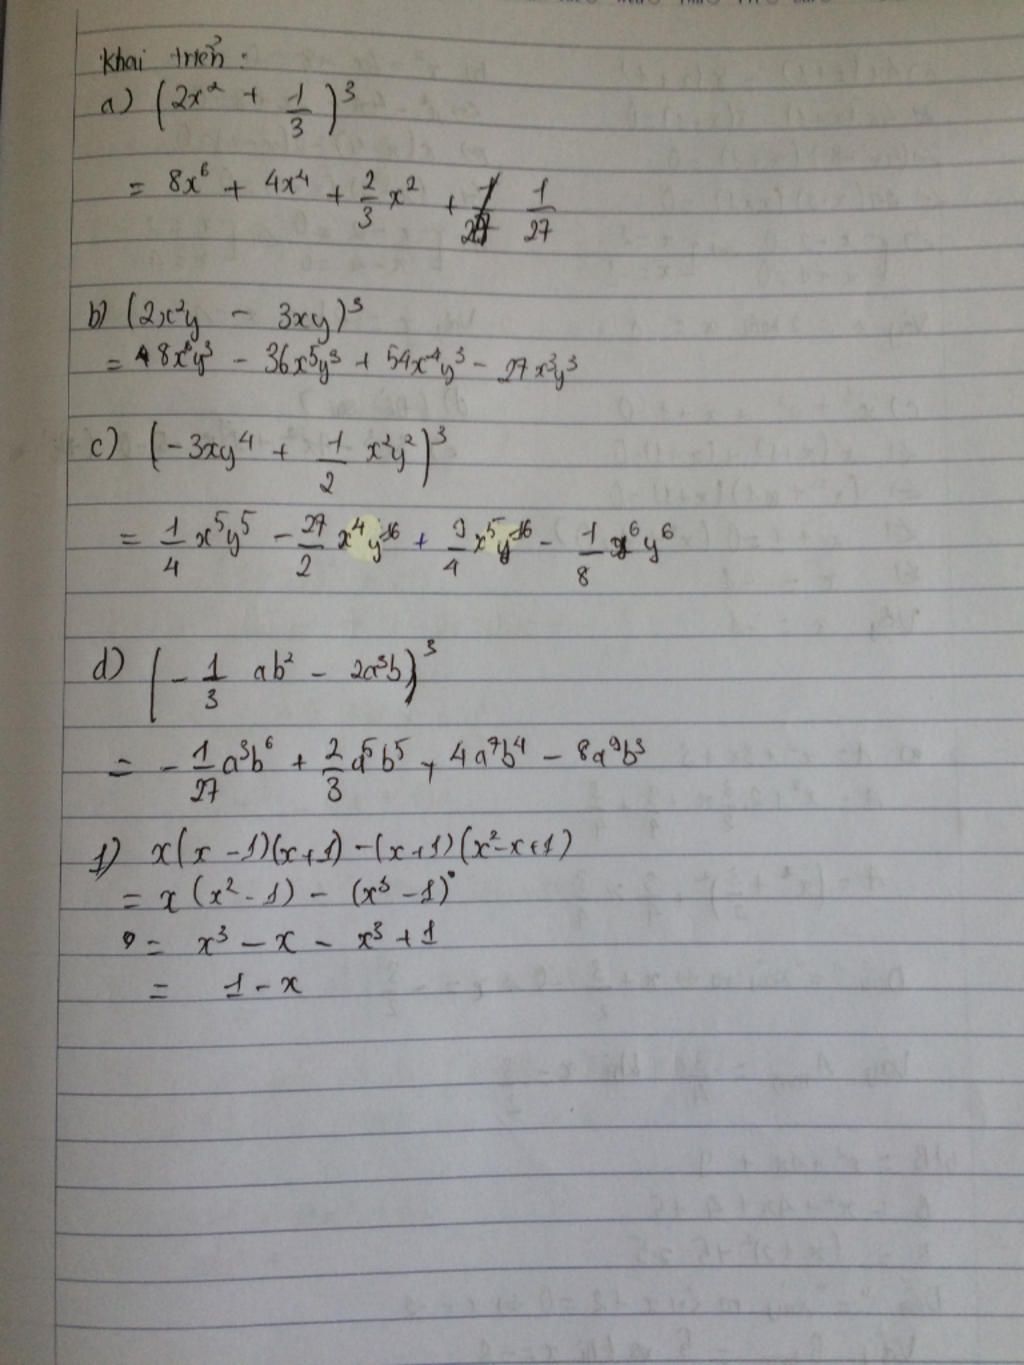 Khai triển :
a) (2x² + 1/3)³
= 8x⁶ + 4x⁴ + 2/3 x² + 1/27
b) (2x²y - 3xy)³
= 8x⁶y³ - 36x⁵y³ + 54x⁴y³ - 27x³y³
c) (-3xy⁴ + 1/2 x²y²)³
= 1/4 x⁵y⁵ - 27/2 x⁴y¹⁶ + 9/4 x⁵y¹⁶ - 1/8 x⁶y⁶
d) (-1/3 ab² - 2a³b)³
= -1/27 a³b⁶ + 2/3 a⁵b⁵ + 4a⁷b⁴ - 8a⁹b³
1) x(x-1)(x+1) - (x+1)(x²-x+1)
= x(x²-1) - (x³-1)
= x³ - x - x³ + 1
= 1 - x